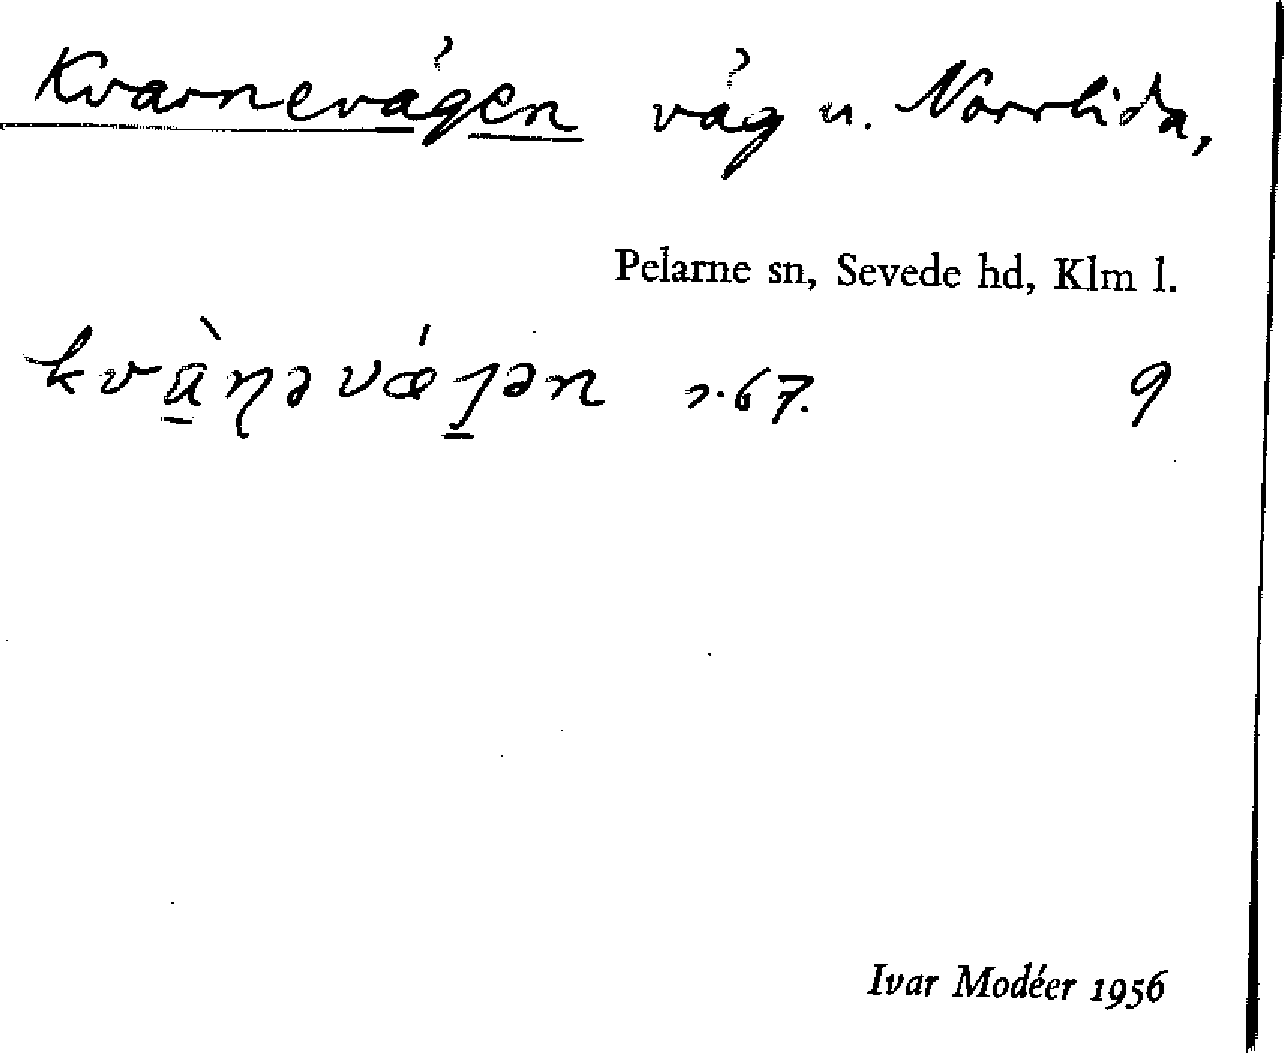 Kvarnevägen väg u. Norrlida,
Pelarne sn, Sevede hd, Klm l.
kvɑ̀ɳəvǽȷən s. 67. 9
Ivar Modéer 1956